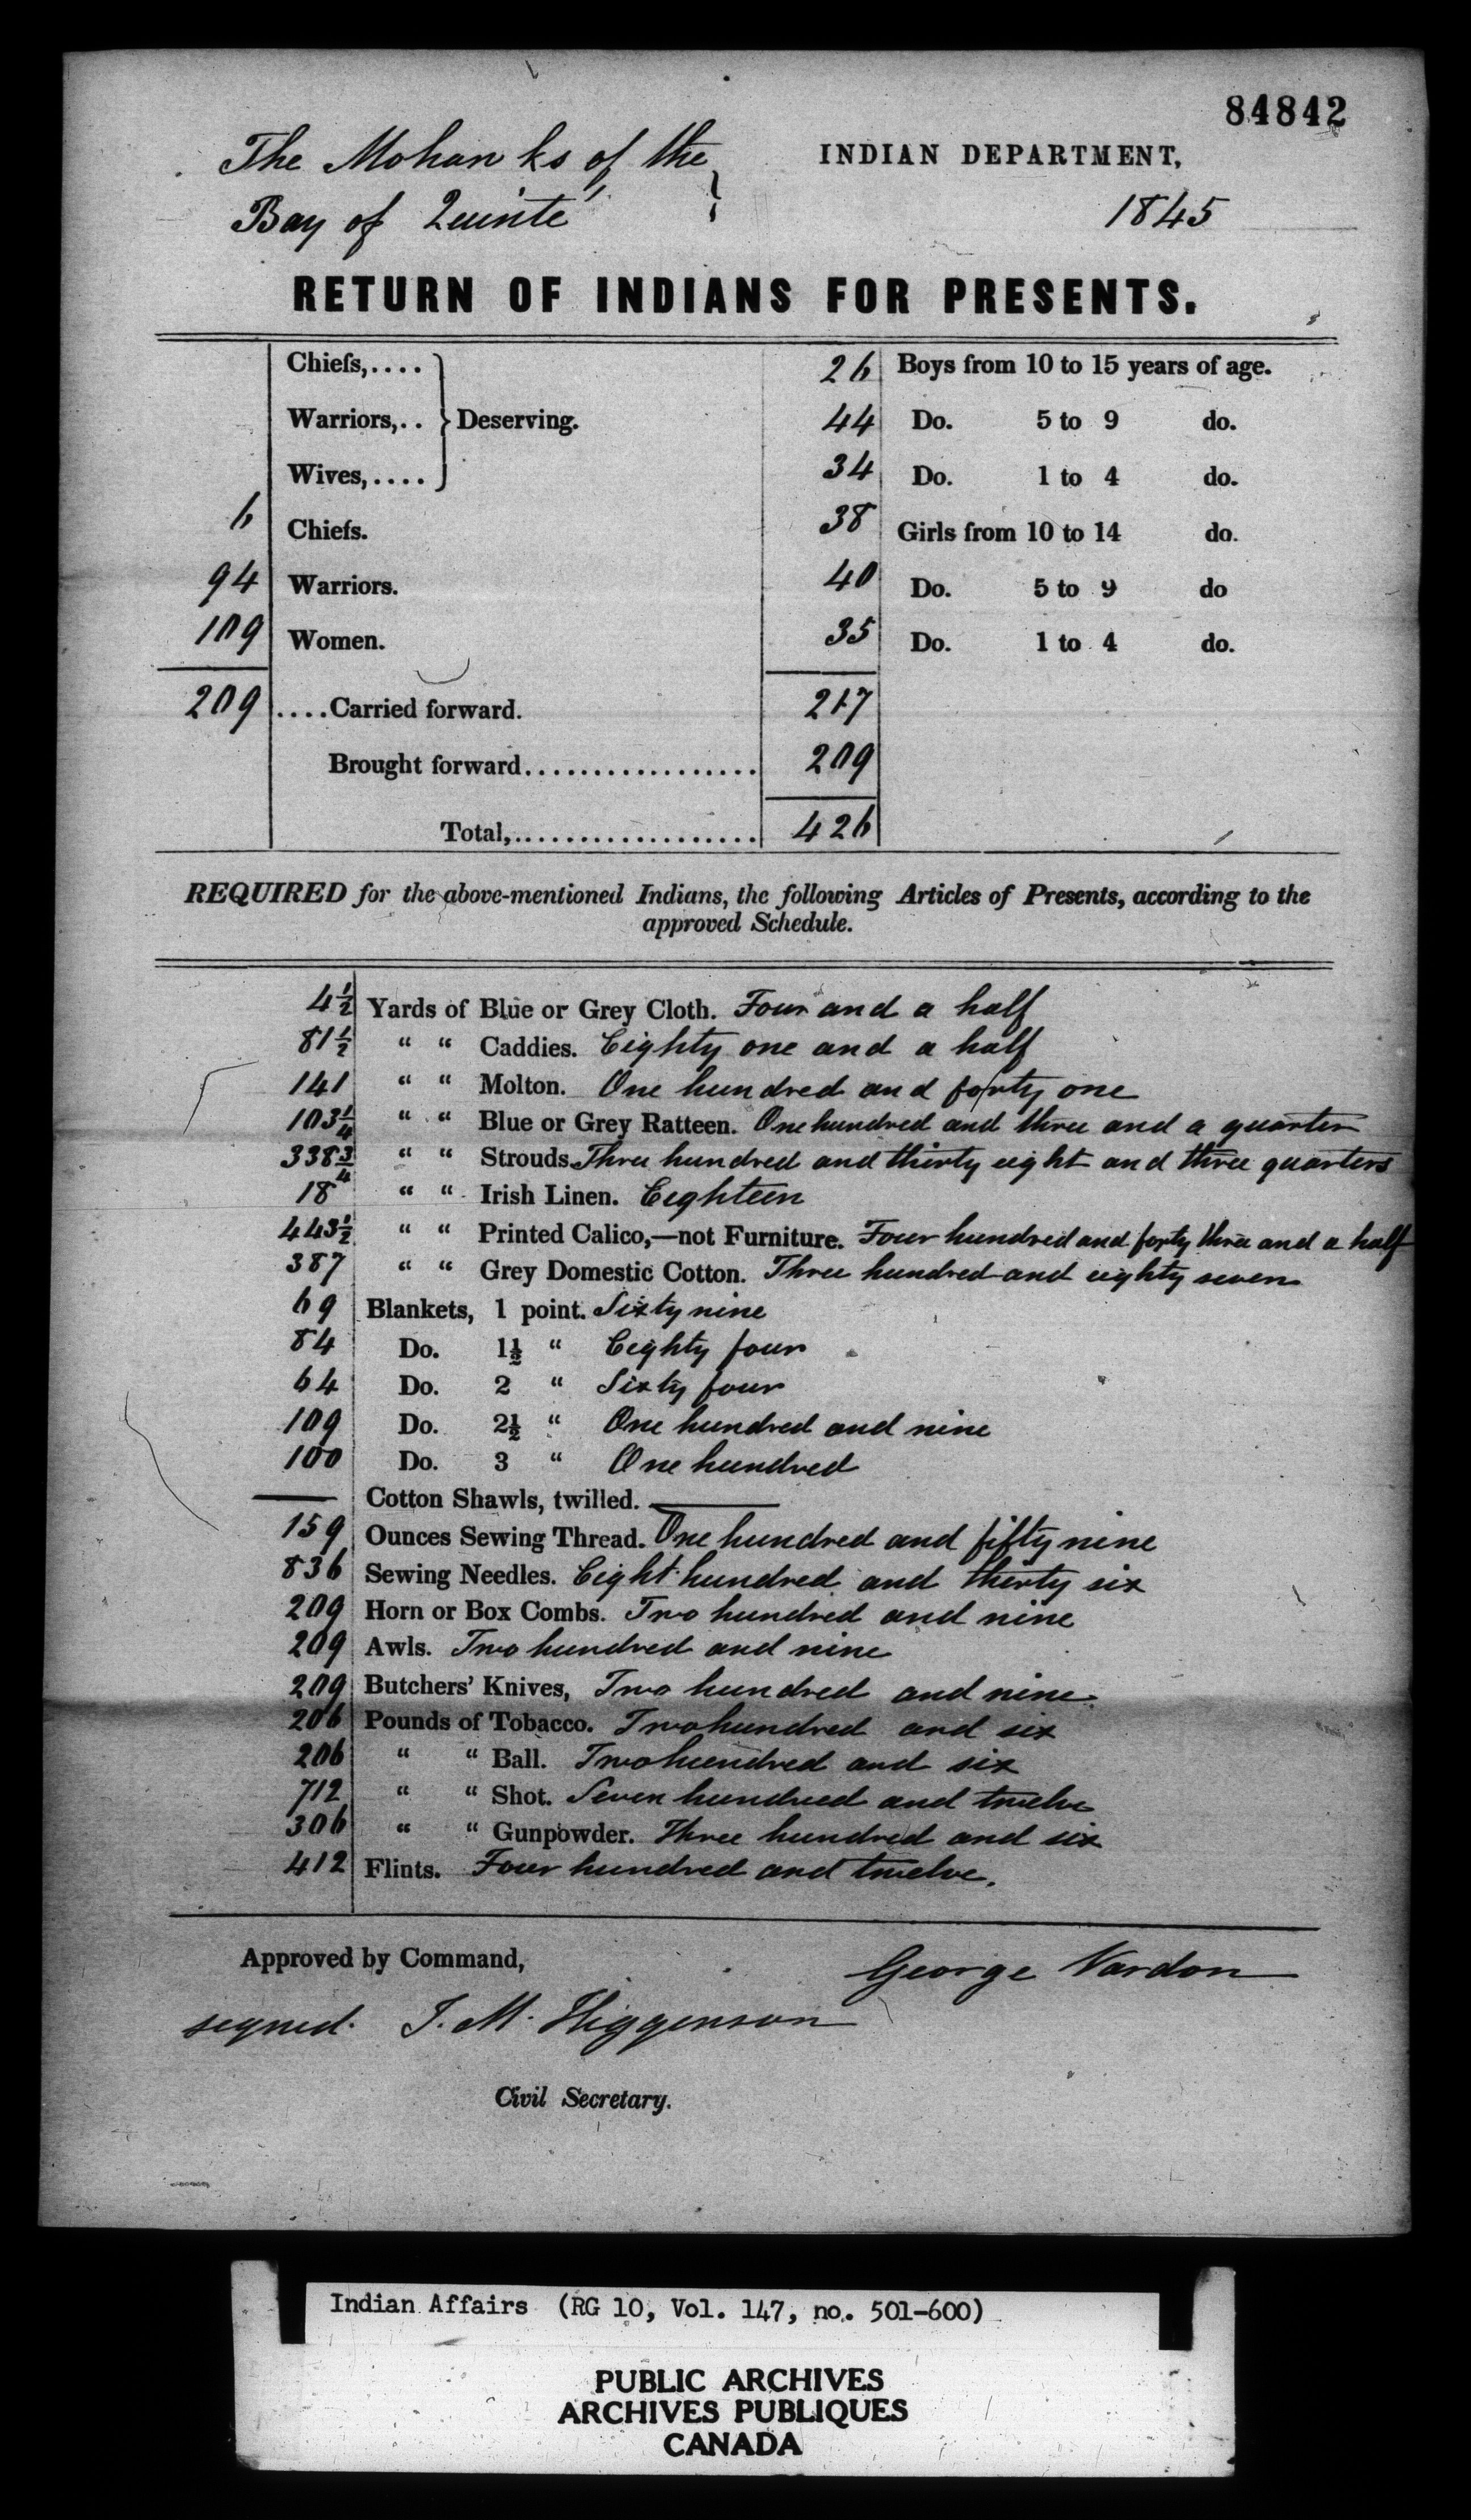 84842
The Mohawks of the
Bay of Quinté
INDIAN DEPARTMENT,
1845
RETURN OF INDIANS FOR PRESENTS.
Chiefs,.... } Deserving. 26 Boys from 10 to 15 years of age.
Warriors,.. 44 Do. 5 to 9 do.
Wives,.... 34 Do. 1 to 4 do.
6 Chiefs. 38 Girls from 10 to 14 do.
94 Warriors. 40 Do. 5 to 9 do
109 Women. 35 Do. 1 to 4 do.
209 ....Carried forward. 217
Brought forward.................. 209
Total,................... 426
REQUIRED for the above-mentioned Indians, the following Articles of Presents, according to the
approved Schedule.
4½ Yards of Blue or Grey Cloth. Four and a half
81½ “ “ Caddies. Eighty one and a half
141 “ “ Molton. One hundred and forty one
103¼ “ “ Blue or Grey Ratteen. One hundred and three and a quarter
338¾ “ “ Strouds. Three hundred and thirty eight and three quarters
18 “ “ Irish Linen. Eighteen
443½ “ “ Printed Calico,—not Furniture. Four hundred and forty three and a half
387 “ “ Grey Domestic Cotton. Three hundred and eighty seven
69 Blankets, 1 point. Sixty nine
84 Do. 1½ “ Eighty four
64 Do. 2 “ Sixty four
109 Do. 2½ “ One hundred and nine
100 Do. 3 “ One hundred
— Cotton Shawls, twilled. —
159 Ounces Sewing Thread. One hundred and fifty nine
836 Sewing Needles. Eight hundred and thirty six
209 Horn or Box Combs. Two hundred and nine
209 Awls. Two hundred and nine
209 Butchers’ Knives, Two hundred and nine
206 Pounds of Tobacco. Two hundred and six
206 “ “ Ball. Two hundred and six
712 “ “ Shot. Seven hundred and twelve
306 “ “ Gunpowder. Three hundred and six
412 Flints. Four hundred and twelve.
Approved by Command,
George Vardon
signed. J. M. Higginson
Civil Secretary.
Indian Affairs (RG 10, Vol. 147, no. 501-600)
PUBLIC ARCHIVES
ARCHIVES PUBLIQUES
CANADA